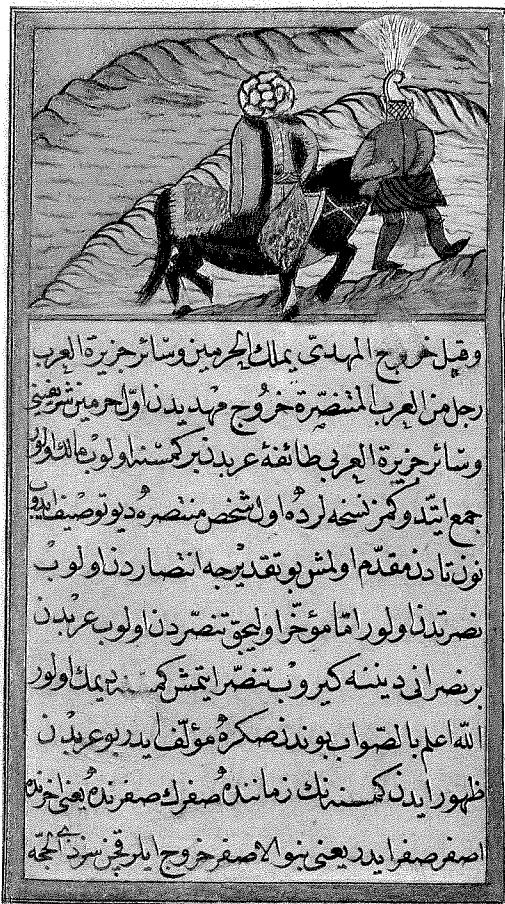 وقبل خروج المهدى يملك الحرمين وسائر جزيرة العرب
رجل من العرب المتنصّرة خروج مهديدن اوّل حرمين شريفينى
وسائر جزيرة العربى طائفۀ عربدن بر كمسنه اولوب مالك اولور
جمع ايتدوكمز نسخه لرده اول شخص منتصره ديو توصيف ايدوب
نون تادن مقدّم اولمش بو تقديرجه انتصاردن اولوب
نصرتدن اولور امّا مؤخّر اوليجق تنصّردن اولوب عربدن
بر نصرانى ديننه كيروب تنصّر ايتمش كمسنه ديمك اولور
الله اعلم بالصّواب بوندن صكره مؤلّف ايدر بو عربدن
ظهور ايدن كمسنه نك زماننده صفرك صفرنده يعنى اخرنده
اصفر صفر ايدر يعنى بنو الاصفر خروج ايلر قچن سز ذى الحجّه